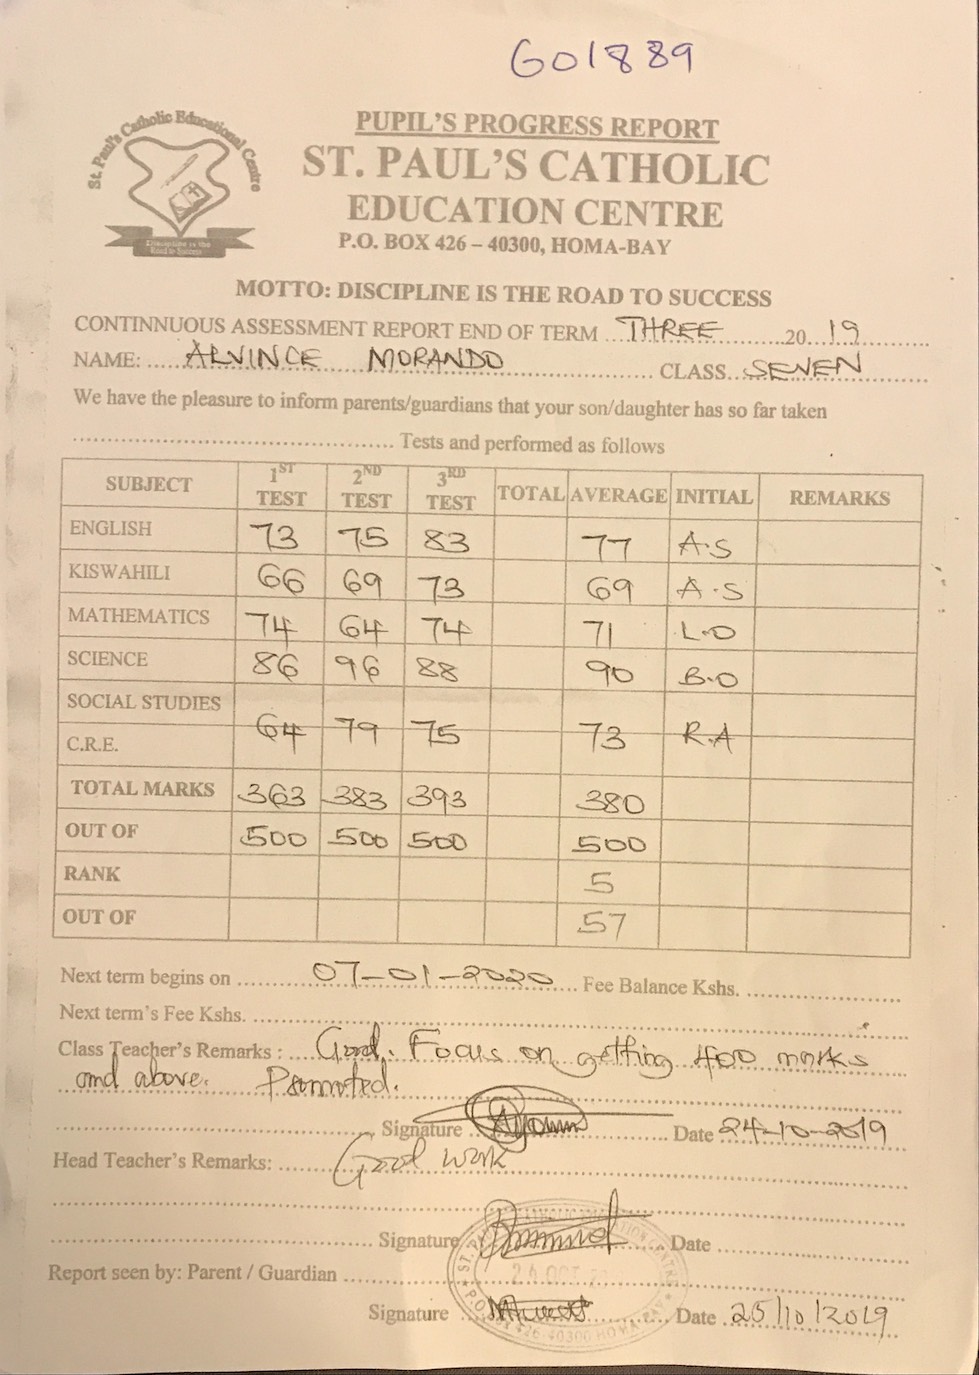 G01889
St. Paul's Catholic Educational Centre
Discipline is the
Road to Success
PUPIL'S PROGRESS REPORT
ST. PAUL'S CATHOLIC
EDUCATION CENTRE
P.O. BOX 426 – 40300, HOMA-BAY
MOTTO: DISCIPLINE IS THE ROAD TO SUCCESS
CONTINNUOUS ASSESSMENT REPORT END OF TERM THREE 20 19
NAME: ALVINCE MORANDO CLASS SEVEN
We have the pleasure to inform parents/guardians that your son/daughter has so far taken
Tests and performed as follows
SUBJECT 1ST TEST 2ND TEST 3RD TEST TOTAL AVERAGE INITIAL REMARKS
ENGLISH 73 75 83 77 A.S
KISWAHILI 66 69 73 69 A.S
MATHEMATICS 74 64 74 71 L.O
SCIENCE 86 96 88 90 B.O
SOCIAL STUDIES
64 79 75 73 R.A
C.R.E.
TOTAL MARKS 363 383 393 380
OUT OF 500 500 500 500
RANK 5
OUT OF 57
Next term begins on 07-01-2020 Fee Balance Kshs.
Next term's Fee Kshs.
Class Teacher's Remarks : Good. Focus on getting 400 marks
and above. Promoted.
Signature Date 24-10-2019
Head Teacher's Remarks: Good work
Signature Date
Report seen by: Parent / Guardian
Signature Date 25/10/2019